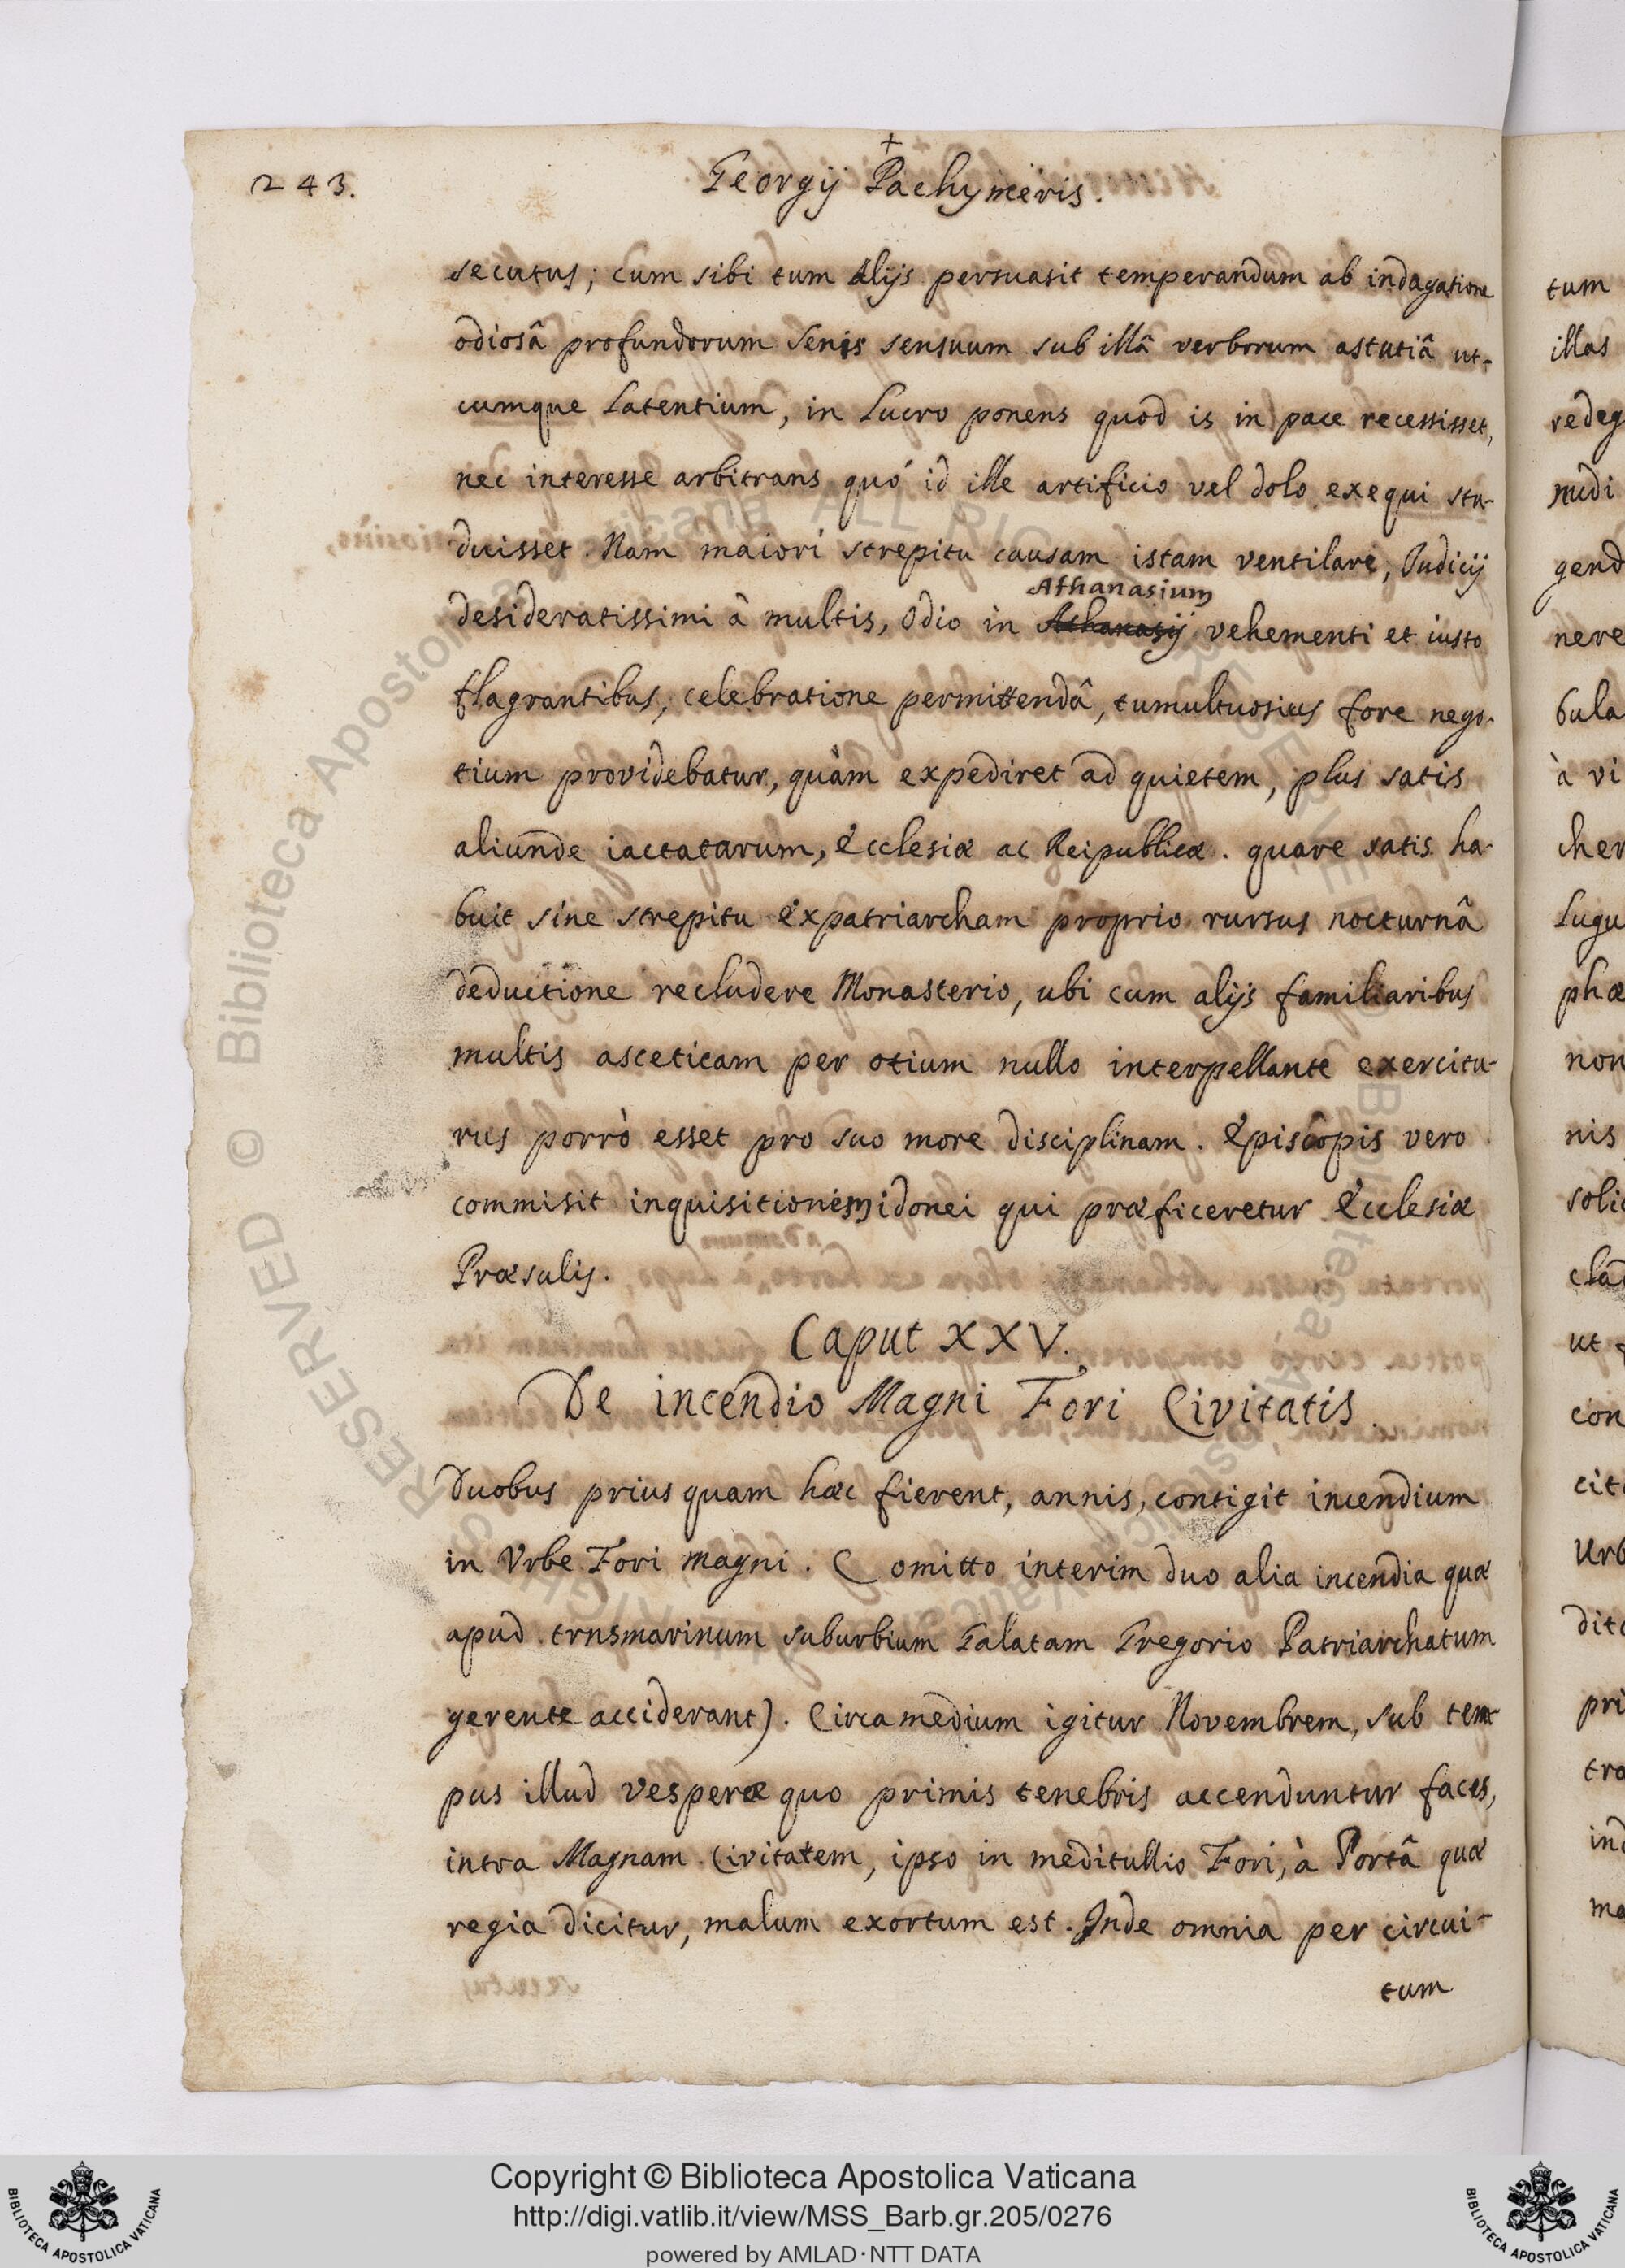 243.
Georgij Pachymeris.
secutus; cum sibi tum Alijs persuasit temperandum ab indagatione
odiosâ profundorum Senis sensuum sub illâ verborum astutiâ ut-
cumque Latentium, in Lucro ponens quod is in pace recessisset,
nec interesse arbitrans quó id ille artificio vel dolo exequi stu-
duisset. Nam maiori strepitu causam istam ventilare, Judicij
Athanasium
desideratissimi â multis, Odio in Athanasij vehementi et iusto
flagrantibus, celebratione permittendâ, tumultuosius fore nego-
tium providebatur, quàm expediret ad quietem, plus satis
aliunde iactatarum, Ecclesiæ ac Reipublicæ. quare satis ha-
buit sine strepitu expatriarcham proprio rursus nocturnâ
deductione recludere Monasterio, ubi cum alijs familiaribus
multis asceticam per otium nullo interpellante exercitu-
rus porrò esset pro suo more disciplinam. Episcopis vero
commisit inquisitionem idonei qui præficeretur Ecclesiæ
Præsulis.
Caput XXV.
De incendio Magni Fori Civitatis.
Duobus prius quam hæc fierent, annis, contigit incendium
in Vrbe Fori magni. ( omitto interim duo alia incendia quæ
apud trnsmarinum suburbium Galatam Gregorio Patriarchatum
gerente acciderant). Circa medium igitur Novembrem, sub tem-
pus illud vesperæ quo primis tenebris accenduntur faces,
intra Magnam Civitatem, ipso in meditullio Fori, à Portâ quæ
regia dicitur, malum exortum est. Inde omnia per circui-
tum
tum
illas
redeg
medi
gend
nere
bula
à vi
cher
Lugu
phæ
non
nis
solic
clad
ut
con
cit
Urb
dit
pri
tra
ind
ma
© Biblioteca Apostolica Vaticana ALL RIGHTS RESERVED
© Biblioteca Apostolica Vaticana ALL RIGHTS RESERVED
Copyright © Biblioteca Apostolica Vaticana
http://digi.vatlib.it/view/MSS_Barb.gr.205/0276
powered by AMLAD·NTT DATA
BIBLIOTECA APOSTOLICA VATICANA
BIBLIOTECA APOSTOLICA VATICANA